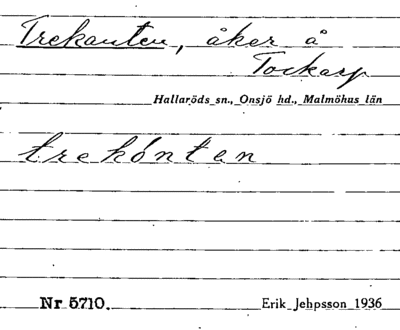 Trekanten, åker å
Tockarp
Hallaröds sn., Onsjö hd., Malmöhus län
trekónten
Nr 5710.
Erik Jehpsson 1936